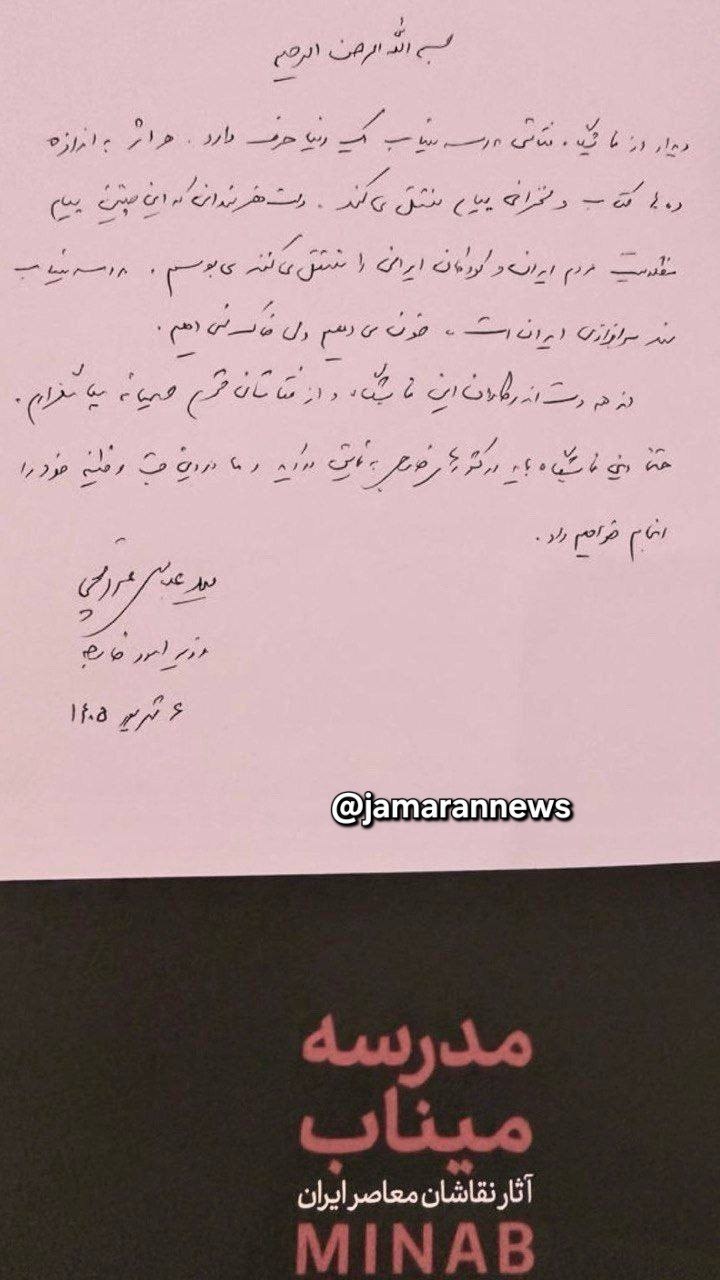 بسم الله الرحمن الرحیم
دیدار از نمایشگاه نقاشی مدرسه میناب یک دنیا حرف دارد. هر اثر به اندازه
ده ها کتاب و سخنرانی پیام منتقل می کند. دست هنرمندانی که این چنین پیام
مظلومیت مردم ایران و کودکان ایرانی را منتقل می کنند می بوسم. مدرسه میناب
سند سرافرازی ایران است، خون می دهیم ولی خاک نمی دهیم.
از همه دست اندرکاران این نمایشگاه و از نقاشان محترم صمیمانه سپاسگزارم.
حتما این نمایشگاه باید در کشورهای خارجی به نمایش درآید و ما در این جهت وظیفه خود را
انجام خواهیم داد.
سید عباس عراقچی
وزیر امور خارجه
۶ شهریور ۱۴۰۵
@jamarannews
مدرسه
میناب
آثار نقاشان معاصر ایران
MINAB